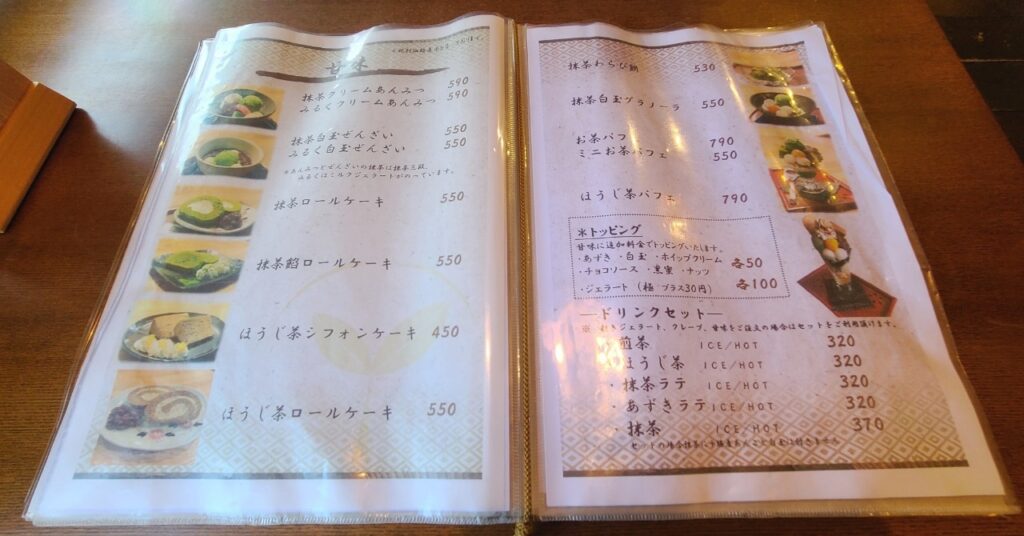 甘味
抹茶クリームあんみつ 590
みるくクリームあんみつ 590
抹茶白玉ぜんざい 550
みるく白玉ぜんざい 550
※あんみつとぜんざいの抹茶は抹茶三段、
みるくはミルクジェラートがのっています。
抹茶ロールケーキ 550
抹茶餡ロールケーキ 550
ほうじ茶シフォンケーキ 450
ほうじ茶ロールケーキ 550
抹茶わらび餅 530
抹茶白玉グラノーラ 550
お茶パフェ 790
ミニお茶パフェ 550
ほうじ茶パフェ 790
※トッピング
甘味に追加料金でトッピングいたします。
・あずき ・白玉 ・ホイップクリーム 各50
・チョコソース ・黒蜜 ・ナッツ
・ジェラート (極 プラス30円) 各100
―ドリンクセット―
ジェラート、クレープ、甘味をご注文の場合はセットをご利用頂けます。
煎茶 ICE/HOT 320
・ほうじ茶 ICE/HOT 320
・抹茶ラテ ICE/HOT 320
・あずきラテ ICE/HOT 320
・抹茶 ICE/HOT 370